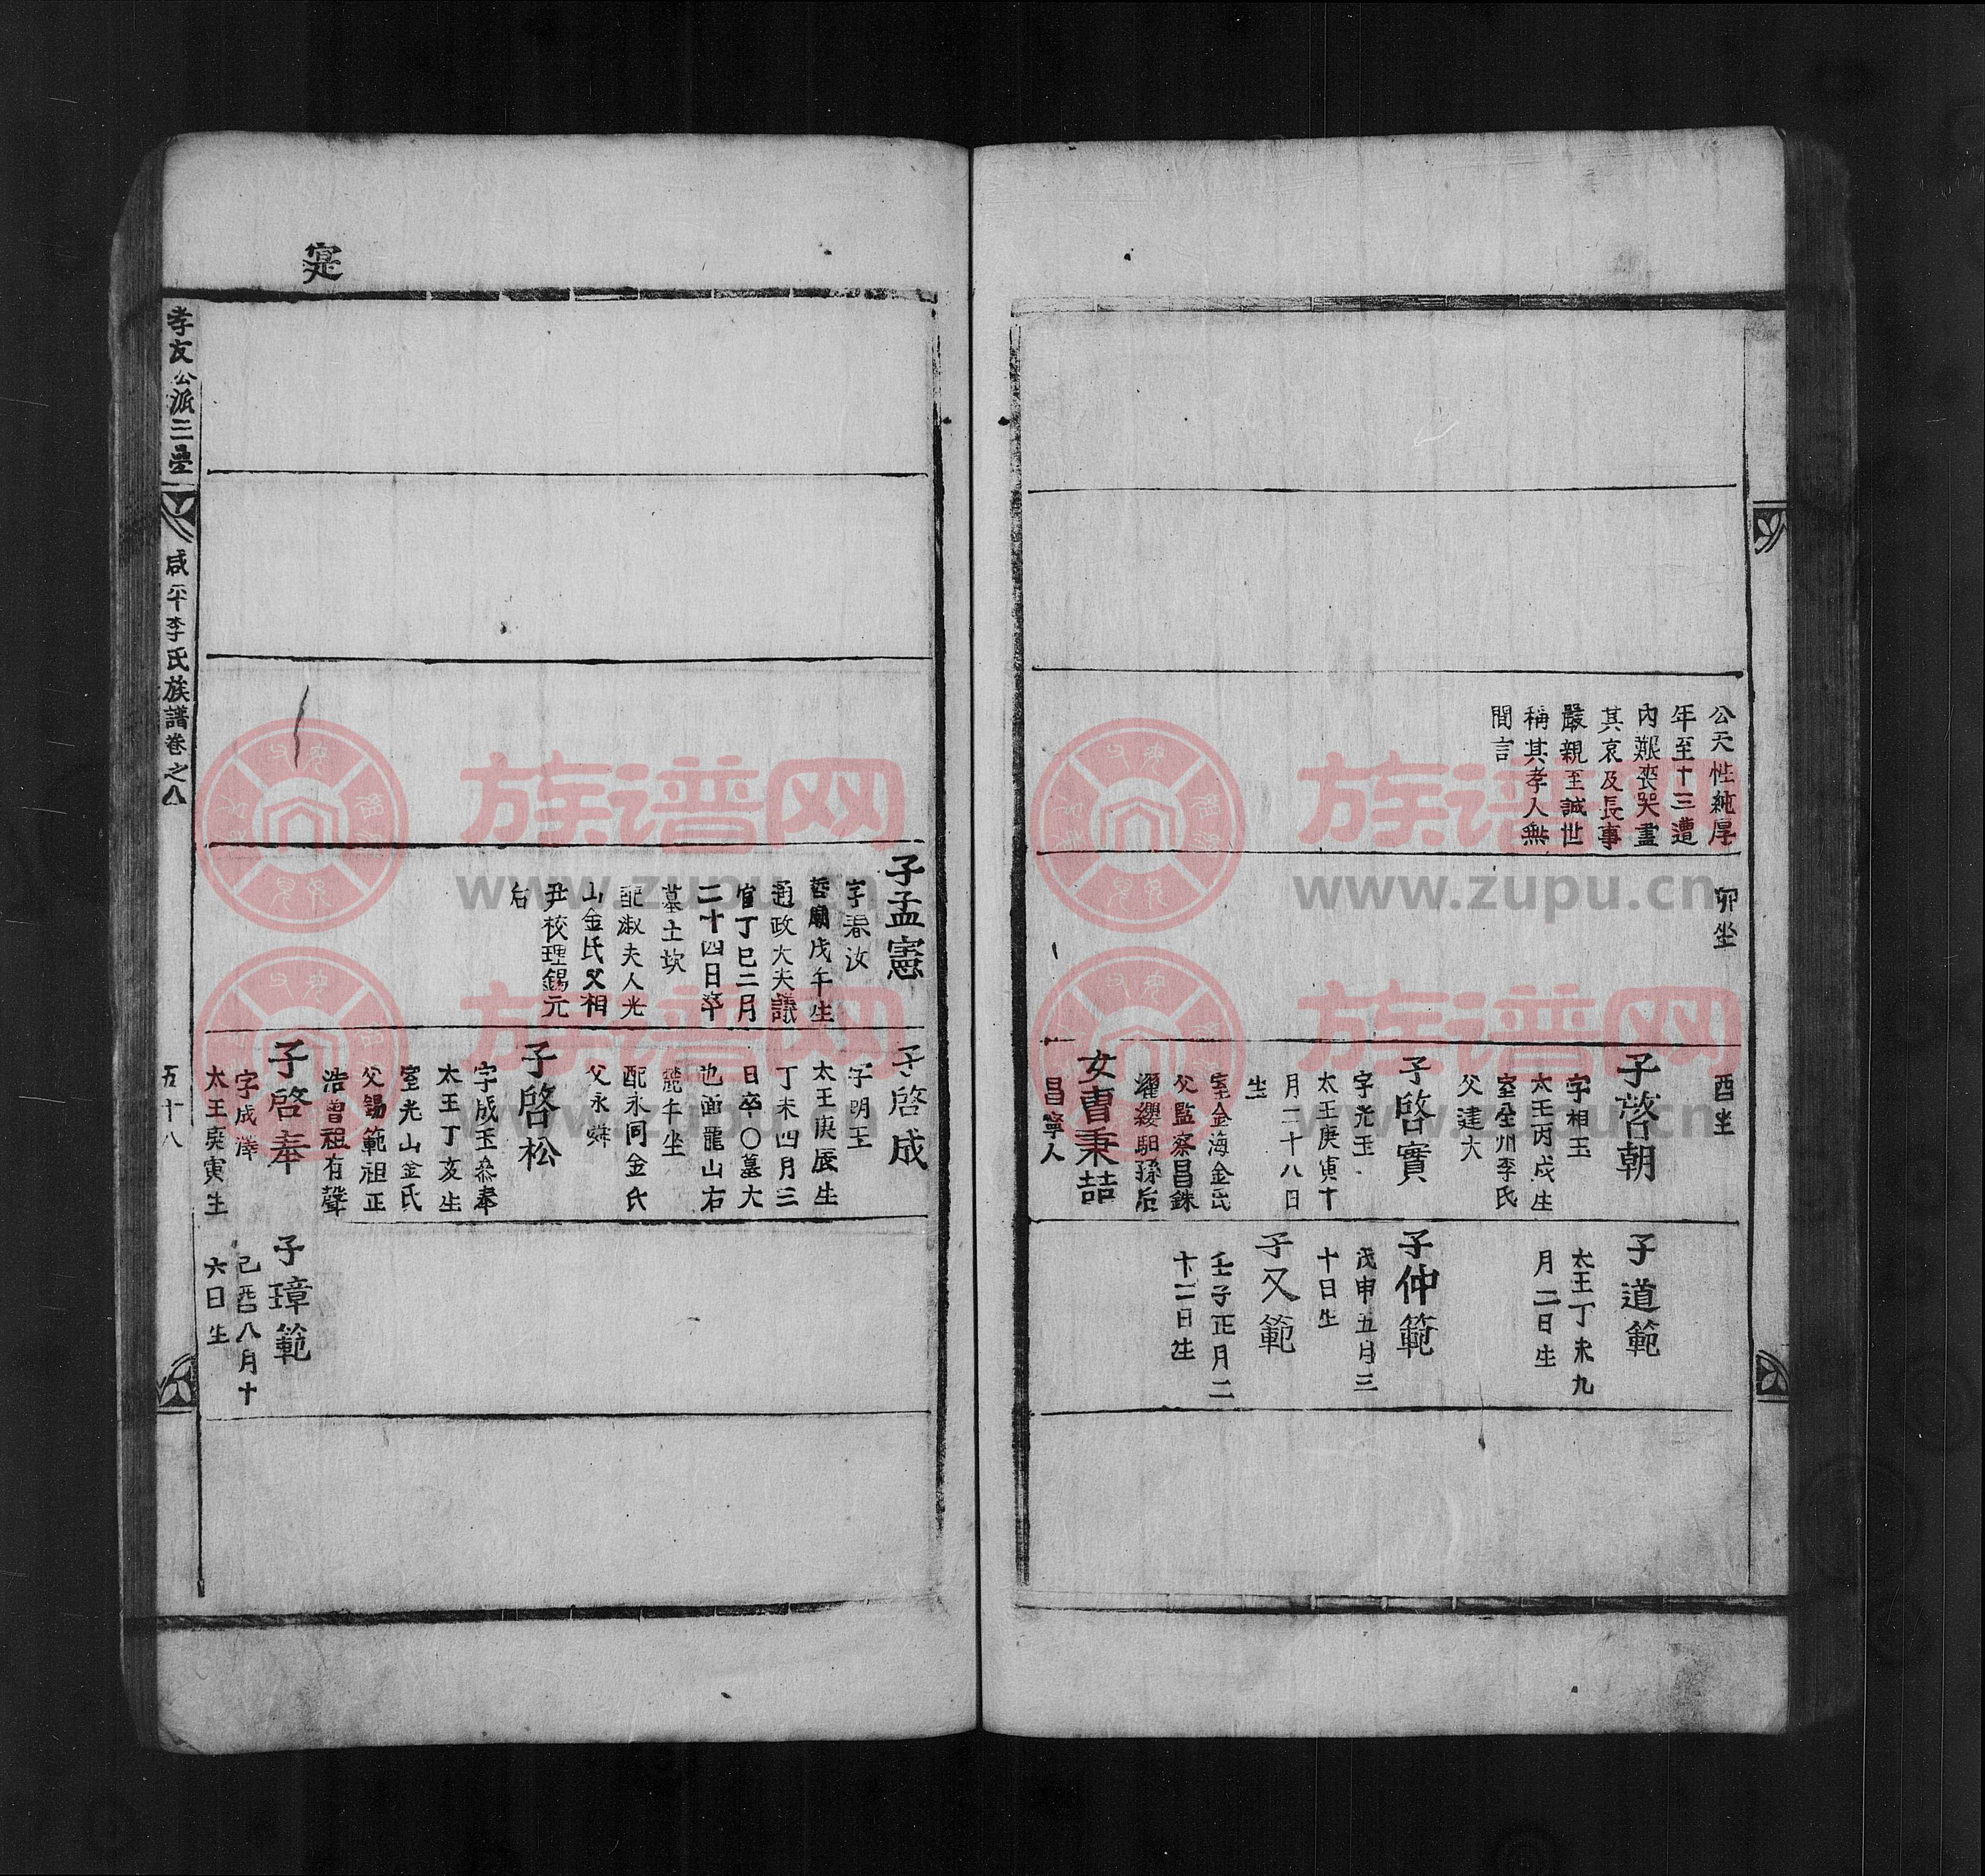 公天性純厚
年至十三遭
內艱喪哭盡
其哀及長事
嚴親至誠世
稱其孝人無
間言
卯坐
酉坐
子啓朝
字相玉
太王丙戌生
室全州李氏
父建大
子啓實
字光玉
太王庚寅十
月二十八日
生
室金海金氏
父監察昌銖
濯纓馹孫后
女曺秉喆
昌寧人
子道範
太王丁未九
月二日生
子仲範
戊申五月三
十日生
子又範
壬子正月二
十二日生
寔
子孟憲
字春汝
哲廟戊午生
通政大夫議
官丁巳二月
二十四日卒
墓土坎
配淑夫人光
山金氏父相
尹校理錫元
后
子啓成
字明玉
太王庚辰生
丁未四月三
日卒〇墓大
也面龍山右
麓午坐
配永同金氏
父永舜
子啓松
字成玉叅奉
太王丁亥生
室光山金氏
父錫範祖正
浩曾祖有聲
子啓奉
字成澤
太王庚寅生
子璋範
己酉八月十
六日生
孝友公派三疊
咸平李氏族譜卷之八
五十八
族谱网
www.zupu.cn
族谱网
www.zupu.cn
族谱网
www.zupu.cn
族谱网
www.zupu.cn